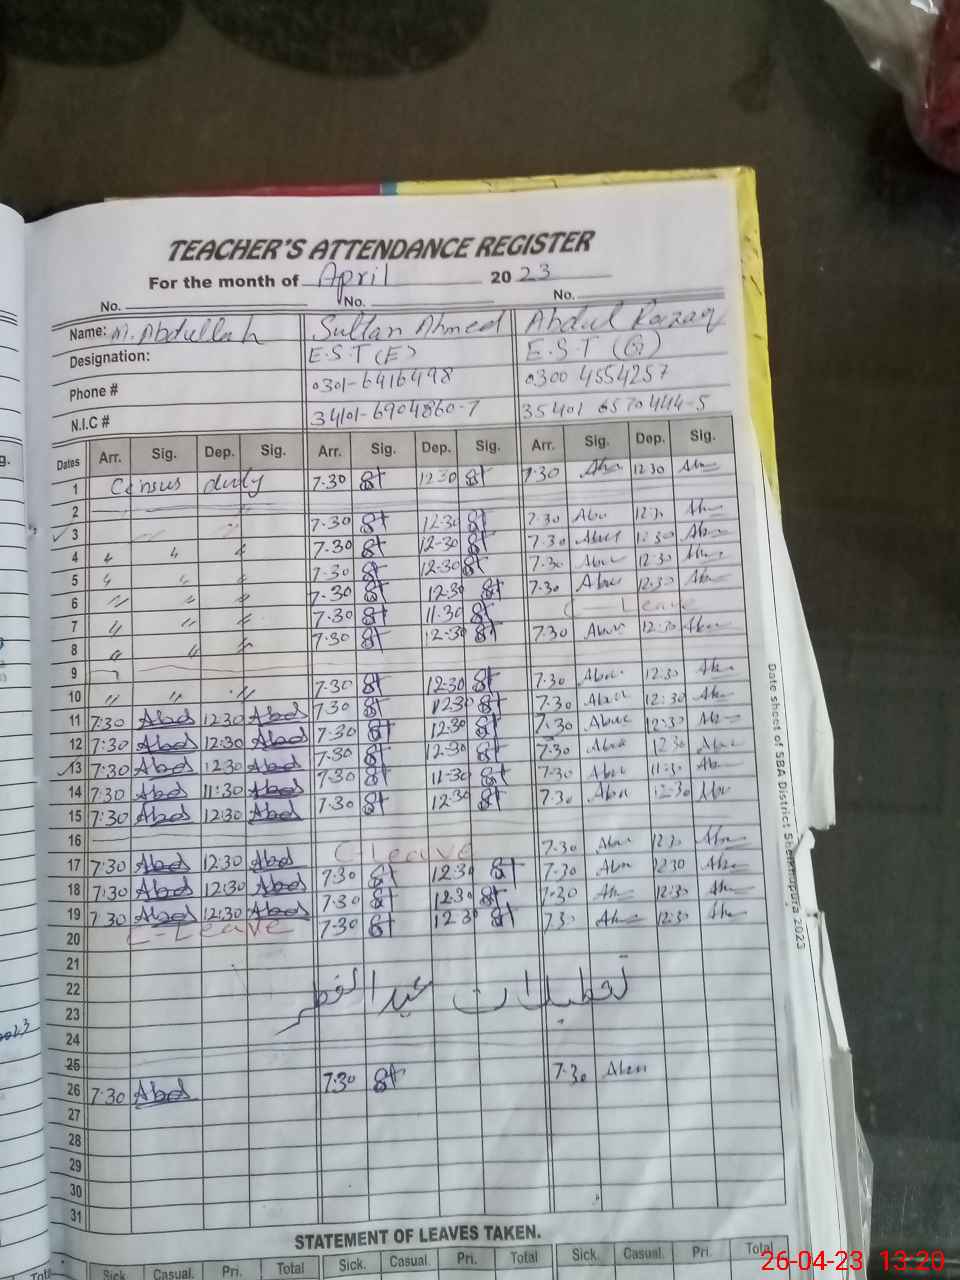 TEACHER'S ATTENDANCE REGISTER
For the month of April 2023
No. No. No.
Name: M. Abdullah Sultan Ahmed Abdul Razaq
Designation: E.S.T (E) E.S.T (G)
Phone # 0301-6416498 0300 4554257
N.I.C # 34101-6904860-7 35401 6570444-5
Dates Arr. Sig. Dep. Sig. Arr. Sig. Dep. Sig. Arr. Sig. Dep. Sig.
1 Census duty 7:30 St 12:30 St 7:30 12:30
2
3 " " 7:30 St 12:30 St 7:30 12:30
4 " " " 7:30 St 12:30 St 7:30 12:30
5 " " " 7:30 St 12:30 St 7:30 12:30
6 " " " 7:30 St 12:30 St 7:30 12:30
7 " " " 7:30 St 11:30 St C-Leave
8 " " " 7:30 St 12:30 St 7:30 12:30
9
10 " " " 7:30 St 12:30 St 7:30 12:30
11 7:30 Abd 12:30 Abd 7:30 St 12:30 St 7:30 12:30
12 7:30 Abd 12:30 Abd 7:30 St 12:30 St 7:30 12:30
13 7:30 Abd 12:30 Abd 7:30 St 12:30 St 7:30 12:30
14 7:30 Abd 11:30 Abd 7:30 St 11:30 St 7:30 11:30
15 7:30 Abd 12:30 Abd 7:30 St 12:30 St 7:30 12:30
16
17 7:30 Abd 12:30 Abd C-Leave 7:30 12:30
18 7:30 Abd 12:30 Abd 7:30 St 12:30 St 7:30 12:30
19 7:30 Abd 12:30 Abd 7:30 St 12:30 St 7:30 12:30
20 C-Leave 7:30 St 12:30 St 7:30 12:30
21
22 تعطیلات عید الفطر
23
24
25
26 7:30 Abd 7:30 St 7:30
27
28
29
30
31
STATEMENT OF LEAVES TAKEN.
Sick. Casual. Pri. Total Sick. Casual. Pri. Total Sick. Casual. Pri. Total
Date sheet of SBA District Sheikhupura 2023
26-04-23 13:20